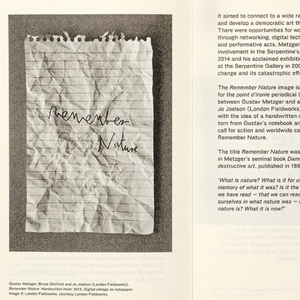 Remember
Nature
Gustav Metzger, Bruce Gilchrist and Jo Joelson (London Fieldworks),
Remember Nature 'Handwritten Note' 2015. Digital collage on notepaper.
Image © London Fieldworks, courtesy London Fieldworks.
It aimed to connect to a wide ra
and develop a democratic art th
There were opportunities for wo
through networking, digital tech
and performative acts. Metzger
involvement in the Serpentine's
2014 and his acclaimed exhibitio
at the Serpentine Gallery in 200
change and its catastrophic effe
The Remember Nature image is
for the point d'ironie periodical (
between Gustav Metzger and a
Jo Joelson (London Fieldworks
with the idea of a handwritten c
torn from Gustav's notebook an
call for action and worldwide ca
Remember Nature.
The title Remember Nature was
in Metzger's seminal book Dam
destructive art, published in 199
'What is nature? What is it for us
memory of what it was? Is it the
we have read – that we can reac
ourselves in what nature was – a
nature is? What it is now?'